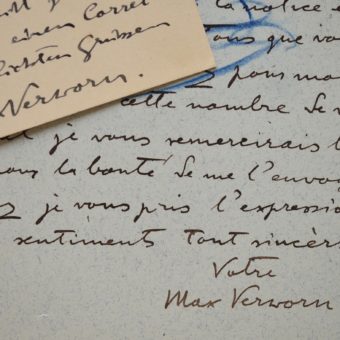 einen Corref
besten Grüssen
Verworn.
la notice e
ous que vo
pour ma
cette nombre de
je vous remercirais
ous la bonté de me l'envoy
z je vous pris l'expressio
sentiments tout sincèr
Votre
Max Verworn